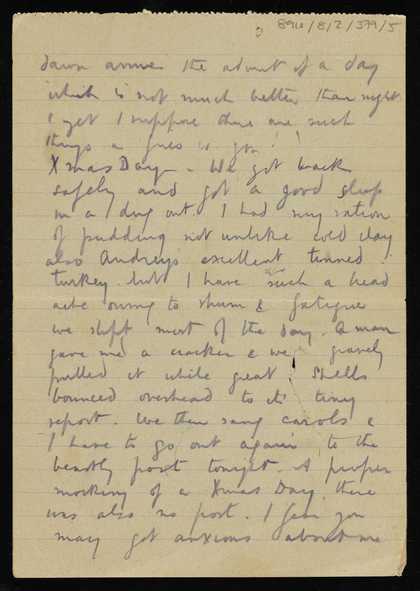 8941/8/2/399/5
dawn annes the advent of a day
which is not much better than night
& yet I suppose there are such
things a fires is you!!
XmasDay - We got back
safely and got a good sleep
in a dug out. I had my ration
of pudding not unlike cold clay
also Audreys excellent tinned
turkey. but I have such a head
ache owing to rhum & fatigue
we slept most of the day. A man
gave me a cracker & we gravely
pulled it while great shells
bounced overhead to its tiny
report. We then sang carols &
I have to go out again to the
beastly post tonight. A proper
mocking of a Xmas Day. there
was also no post. I fear you
may get anxious about me